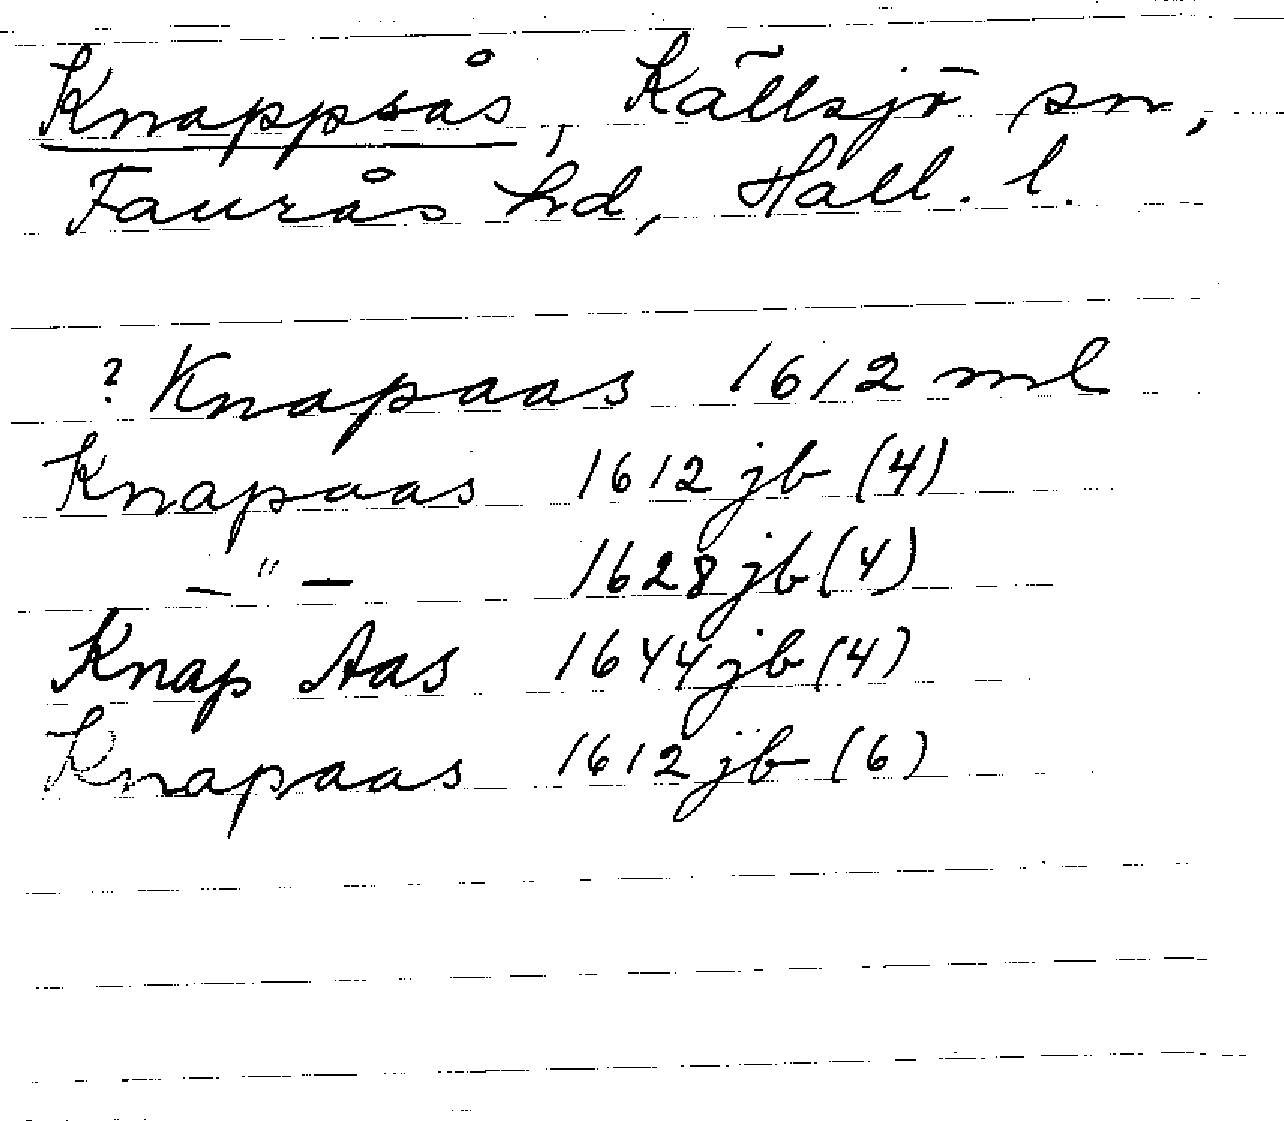 Knappsås, Källsjö sn,
Faurås hd, Hall. l.
? Knapaas 1612 ml
Knapaas 1612 jb (4)
—"— 1628 jb (4)
Knap Aas 1644 jb (4)
Knapaas 1612 jb (6)